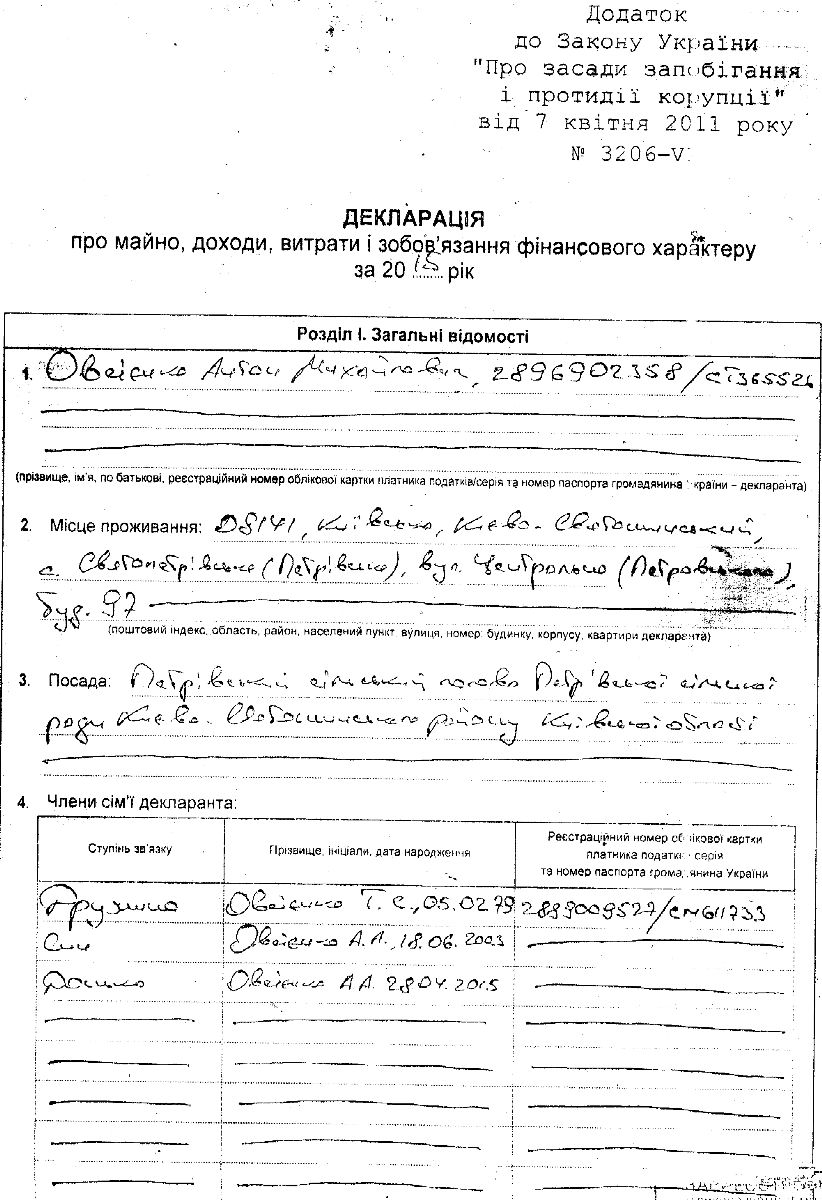 Додаток
до Закону України
"Про засади запобігання
і протидії корупції"
від 7 квітня 2011 року
№ 3206-VI
ДЕКЛАРАЦІЯ
про майно, доходи, витрати і зобов'язання фінансового характеру
за 2015 рік
Розділ I. Загальні відомості
1. Овсієнко Антон Михайлович, 2896902358/СТ365526
(прізвище, ім'я, по батькові, реєстраційний номер облікової картки платника податків/серія та номер паспорта громадянина України – декларанта)
2. Місце проживання: 08141, Київська, Києво-Святошинський,
с. Святопетрівське (Петрівське), вул. Центральна (Петровського),
буд. 97
(поштовий індекс, область, район, населений пункт, вулиця, номер: будинку, корпусу, квартири декларанта)
3. Посада: Петрівський сільський голова Петрівської сільської
ради Києво-Святошинського району Київської області
4. Члени сім'ї декларанта:
Ступінь зв'язку
Прізвище, ініціали, дата народження
Реєстраційний номер облікової картки
платника податків/серія
та номер паспорта громадянина України
Дружина Овсієнко Т. С., 05.02.79 2889009527/СМ611733
Син Овсієнко А.А., 18.06.2003
Дочка Овсієнко А.А. 28.04.2015